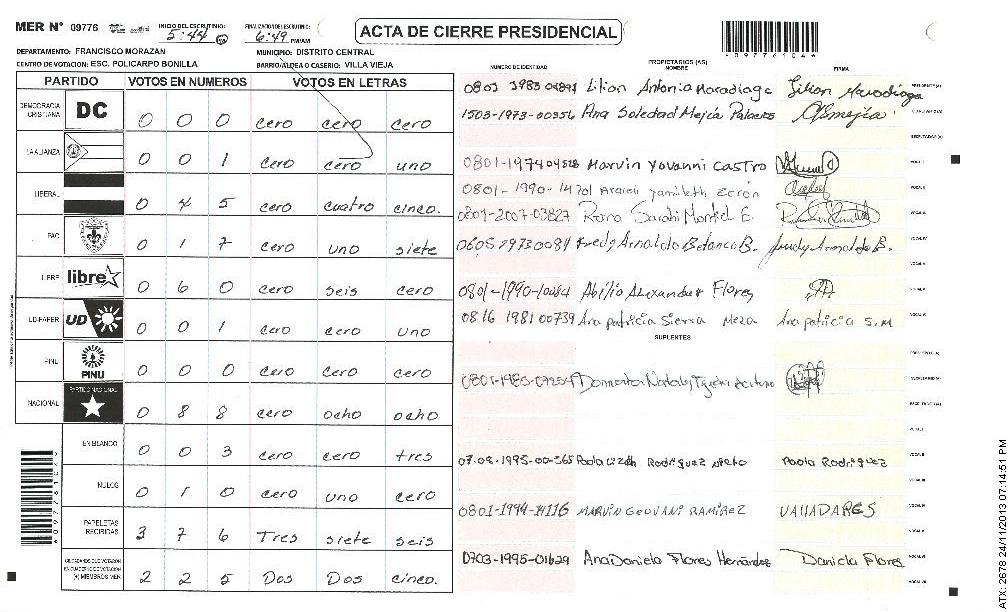 MER N° 09776 INICIO DEL ESCRUTINIO: 5:44 FINALIZACION DEL ESCRUTINIO: 6:49 PM/AM ACTA DE CIERRE PRESIDENCIAL
DEPARTAMENTO: FRANCISCO MORAZAN MUNICIPIO: DISTRITO CENTRAL
CENTRO DE VOTACION: ESC. POLICARPO BONILLA BARRIO/ALDEA O CASERIO: VILLA VIEJA
PARTIDO VOTOS EN NUMEROS VOTOS EN LETRAS
DEMOCRACIA CRISTIANA DC 0 0 0 cero cero cero
LA ALIANZA 0 0 1 cero cero uno
LIBERAL 0 4 5 cero cuatro cinco.
PAC 0 1 7 cero uno siete
LIBRE libre 0 6 0 cero seis cero
UD-FAPER UD 0 0 1 cero cero uno
PINU PINU 0 0 0 cero cero cero
NACIONAL PARTIDO NACIONAL 0 8 8 cero ocho ocho
EN BLANCO 0 0 3 cero cero tres
NULOS 0 1 0 cero uno cero
PAPELETAS RECIBIDAS 3 7 6 Tres siete seis
CIUDADANOS QUE VOTARON EN CUADERNO DE VOTACION (+) MIEMBROS MER 2 2 5 Dos Dos cinco.
NUMERO DE IDENTIDAD PROPIETARIOS (AS) NOMBRE FIRMA
Lilian Antonia Maradiaga Lilian Maradiaga PRESIDENTE(A)
1503-1973-00356 Ana Soledad Mejía
Marvin Yovanni Castro
0801-1990-14701 Araceli Yamileth
0801-2007-03827 Sarahi
Fredy Arnaldo Betanco B. Fredy Arnaldo B.
0801-1990-10084 Abilio Alexander Flores
0816 1981 00739 Ana patricia Sierra Meza Ana patricia S.M
SUPLENTES
Rodriguez Paola Rodriguez
0801-1994-14116 MARVIN GEOVANI RAMIREZ VALLADARES
0703-1995-01629 Ana Daniela Flores Hernández Daniela Flores
ATX: 2678 24/11/2013 07:14:51 PM